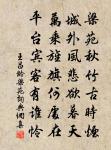 梁苑秋竹古時煙
城外風悲欲暮天
萬乘旌旗何處在
平台賓客有誰憐
王昌齡梁苑詞典網書